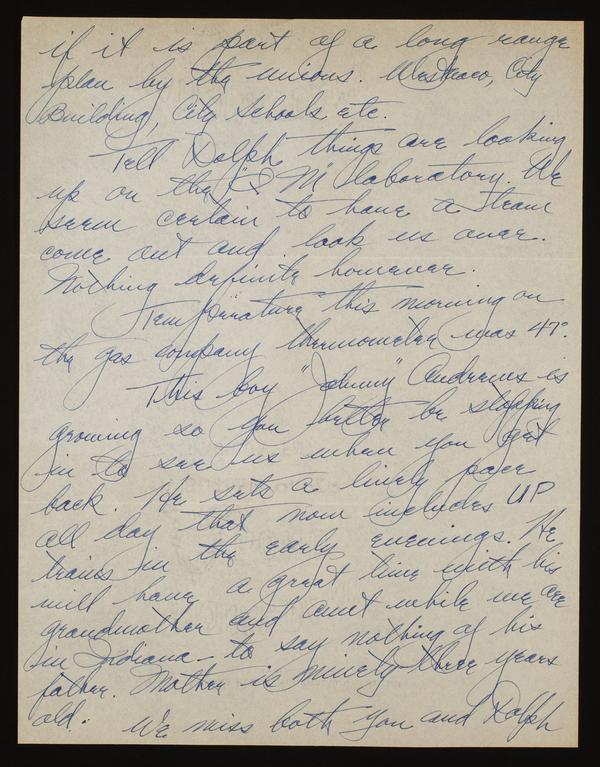 if it is part of a long range
plan by the unions. Westvaco, City
Building, City Schools etc.
Tell Dolph things are looking
up on the "I M" laboratory. We
seem certain to have a team
come out and look us over.
Nothing definite however.
Temperature this morning on
the gas company thermometer was 47°.
This boy "Johnny" Andrews is
growing so you better be stopping
in to see us when you get
back. He sets a lively pace
all day that now includes UP
trains in the early evenings. He
will have a great time with his
grandmother and aunt while we are
in Indiana - to say nothing of his
father. Mother is ninety three years
old. We miss both you and Dolph